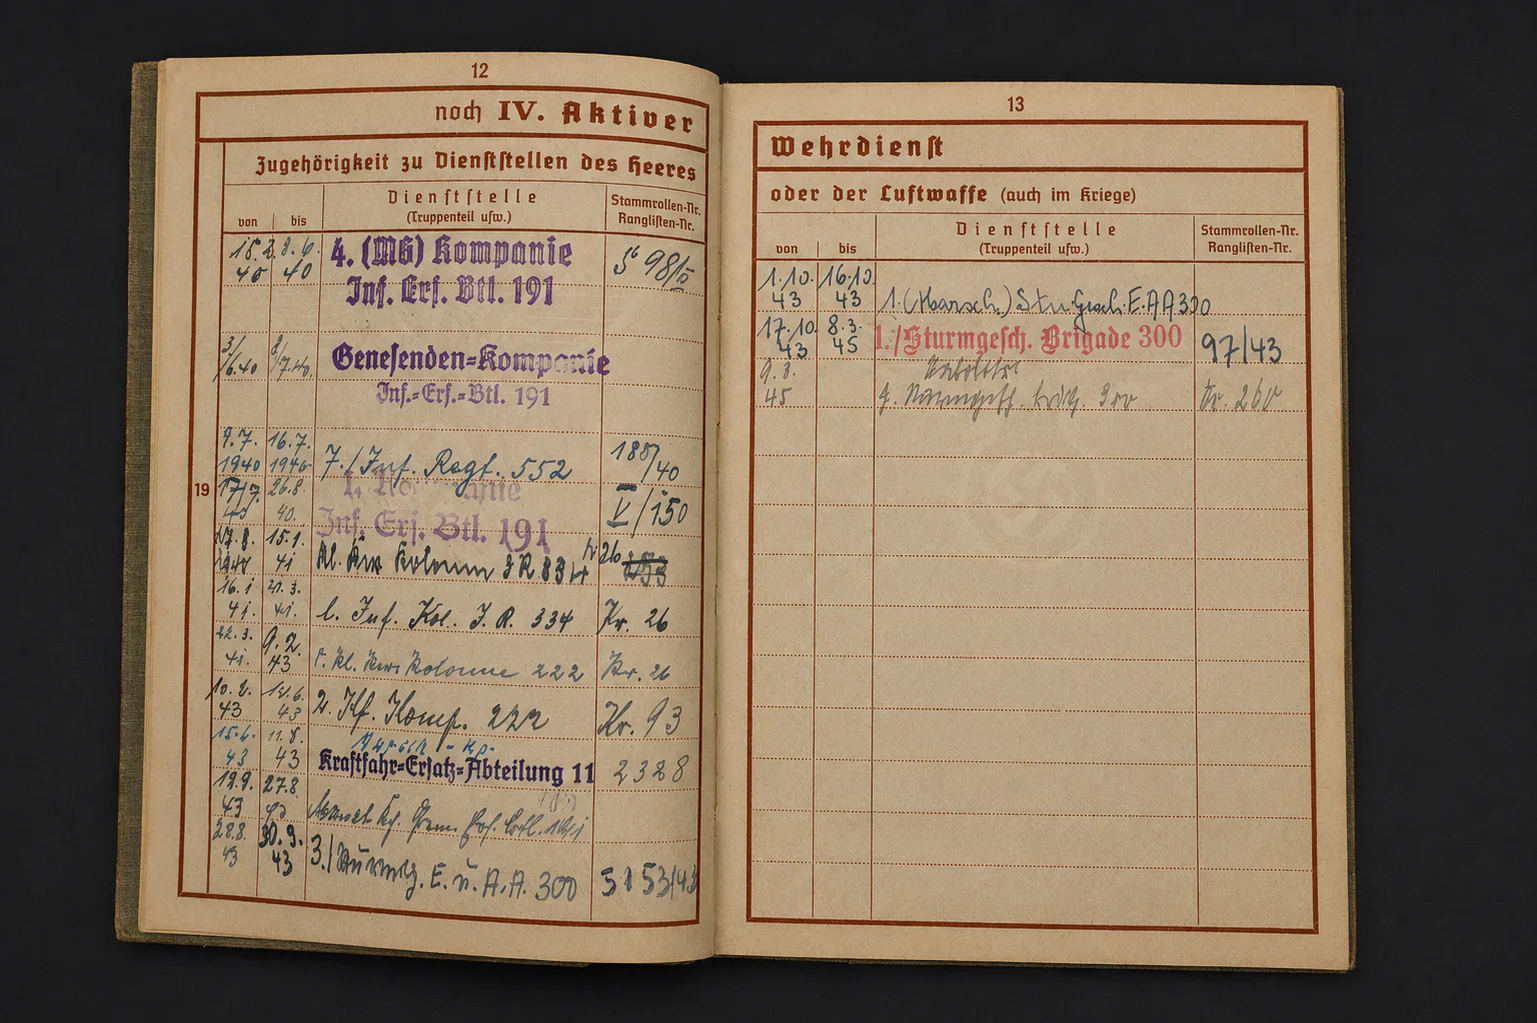 12
noch IV. Aktiver
Zugehörigkeit zu Dienststellen des Heeres
von bis Dienststelle (Truppenteil usw.) Stammrollen-Nr. Ranglisten-Nr.
15.2. 40 8.6. 40 4. (MG) Kompanie 98/
Inf. Ers. Btl. 191
/6.40 /7.40. Genesenden-Kompanie
Inf.-Ers.-Btl. 191
9.7. 1940 16.7. 1940 7./Inf. Regt. 552 /40
19 17/7. 40 26.8. 40. 1. Kompanie V/150
Inf. Ers. Btl. 191
27.8. 1940 15.1. 41 Kl. Kw. Kolonne JR 334 26
16.1 41. 21.3. 41. l. Inf. Kol. J.R. 334 Kr. 26
22.3. 41. 9.2. 43 kl. Kw. Kolonne 222 Kr. 26
10.2. 43 14.6. 43 2. Kf. Komp. 222 Kr. 93
15.6. 43 11.8. 43 Marsch-Kp.
Kraftfahr-Ersatz-Abteilung 11 2328
43 27.8
28.8. 43 30.9. 43 3./Sturmg. E. u. A.A. 300 3153/43
13
Wehrdienst
oder der Luftwaffe (auch im Kriege)
von bis Dienststelle (Truppenteil usw.) Stammrollen-Nr. Ranglisten-Nr.
1.10. 43 16.10. 43 1. (Marsch.) Stu.Gesch.E.AA 300
17.10. 43 8.3. 45 1./Sturmgesch. Brigade 300 97/43
9.3. 45 Sturmgesch. Brig. 300 Nr. 260